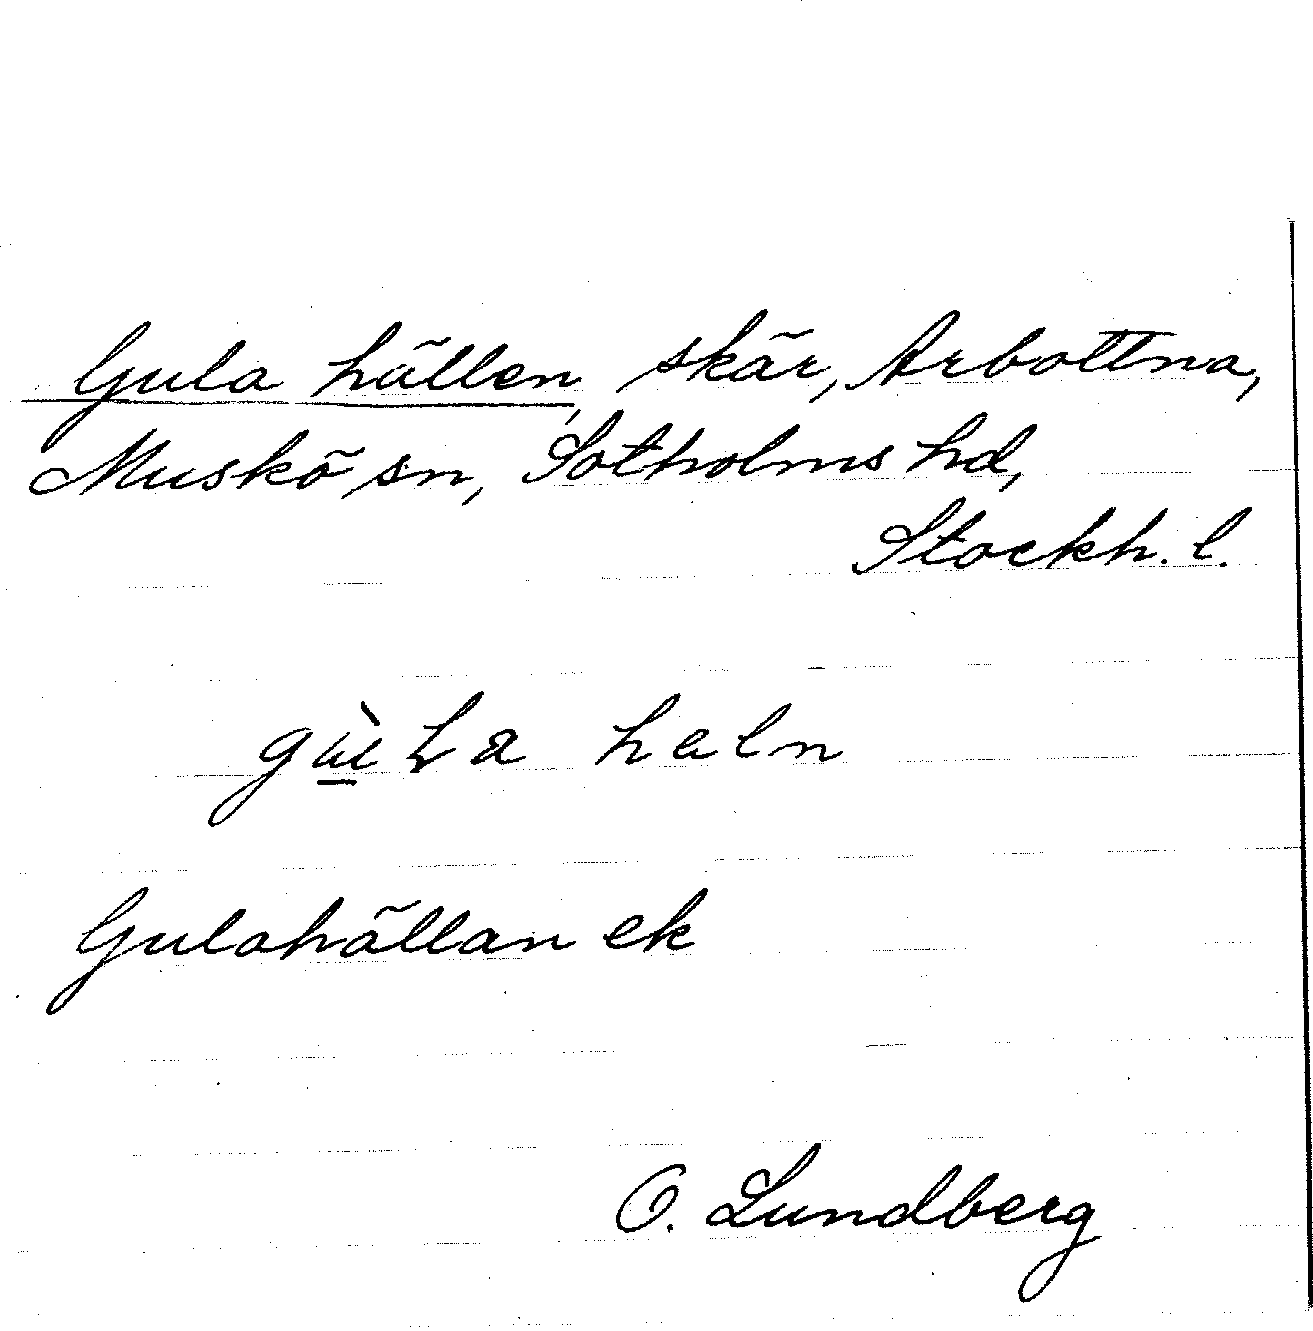 Gula hällen, skär, Arbottna,
Muskö sn, Sotholms hd,
Stockh. l.
haln
Gulahällan ek
O. Lundberg